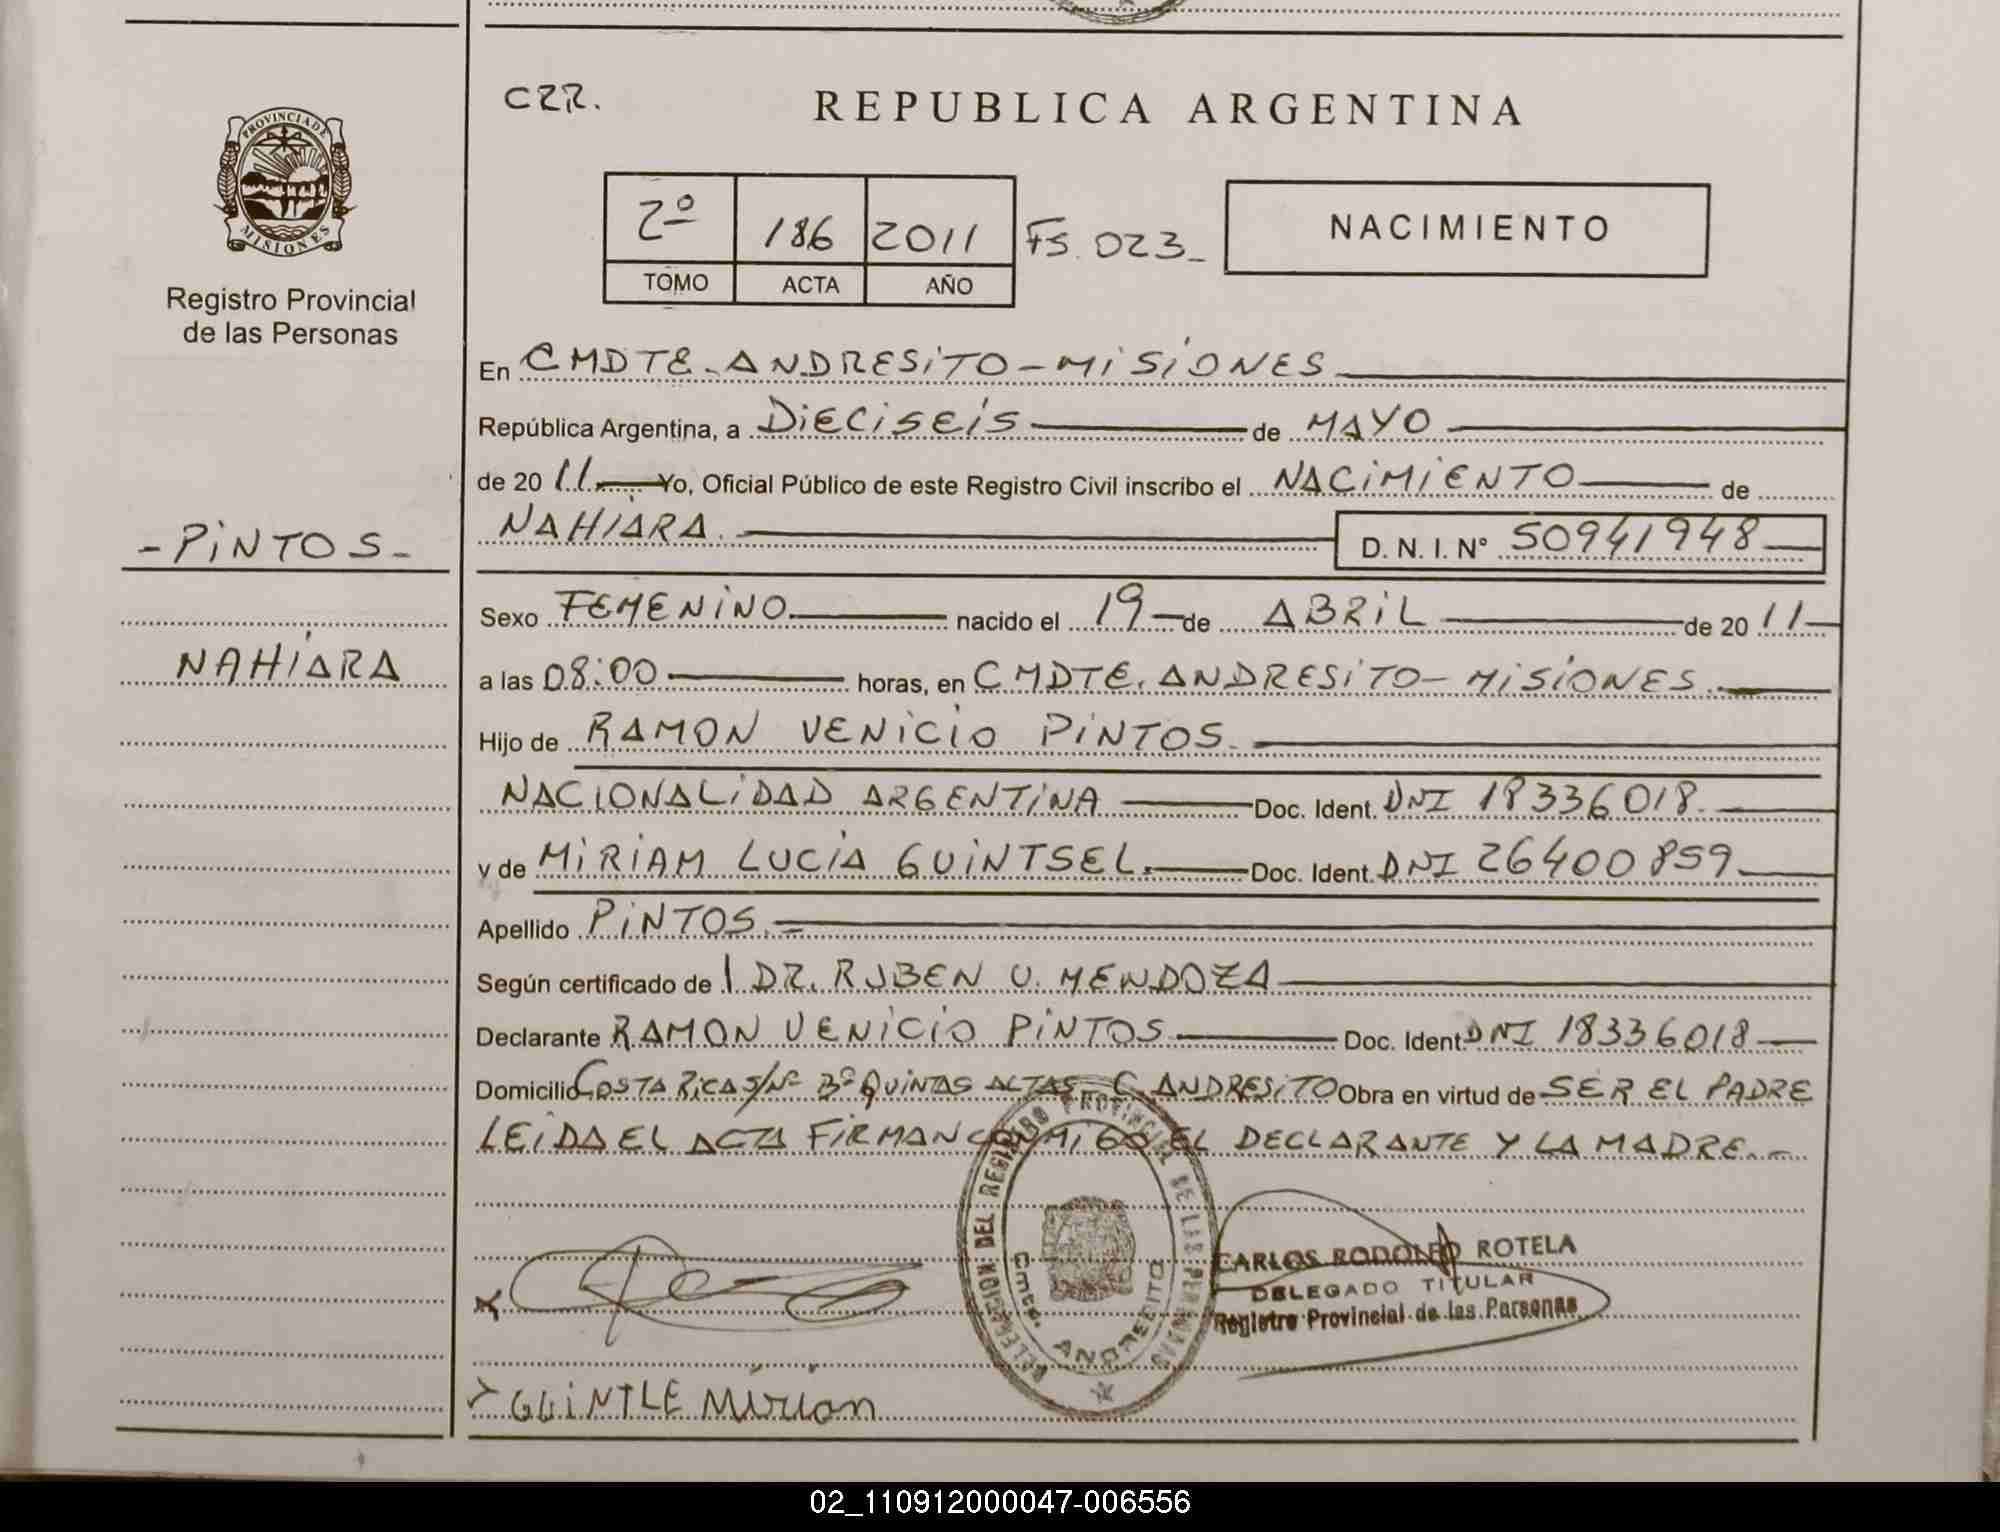 CRR.
REPUBLICA ARGENTINA
PROVINCIA DE
MISIONES
Registro Provincial
de las Personas
2º 186 2011 FS. 023_
TOMO ACTA AÑO
NACIMIENTO
En CMDTE. ANDRESITO - MISIONES
República Argentina, a DIECISEIS de MAYO
de 20 11 Yo, Oficial Público de este Registro Civil inscribo el NACIMIENTO de
- PINTOS -
NAHIARA. D. N. I. Nº 50941948
Sexo FEMENINO nacido el 19 de ABRIL de 20 11
NAHIARA
a las 08:00 horas, en CMDTE. ANDRESITO - MISIONES.
Hijo de RAMON VENICIO PINTOS.
NACIONALIDAD ARGENTINA Doc. Ident. DNI 18336018.
y de MIRIAM LUCIA GUINTSEL. Doc. Ident. DNI 26400859
Apellido PINTOS. =
Según certificado de DR. RUBEN U. MENDOZA
Declarante RAMON VENICIO PINTOS Doc. Ident. DNI 18336018
Domicilio COSTA RICA S/Nº Bº QUINTAS ALTAS - C. ANDRESITO Obra en virtud de SER EL PADRE
LEIDA EL ACTA FIRMAN CONMIGO EL DECLARANTE Y LA MADRE. -
DELEGACION DEL REGISTRO PROVINCIAL DE LAS PERSONAS
Cmte. ANDRESITO
CARLOS RODOLFO ROTELA
DELEGADO TITULAR
Registro Provincial de las Personas
GUINTLE Mirian
02_110912000047-006556